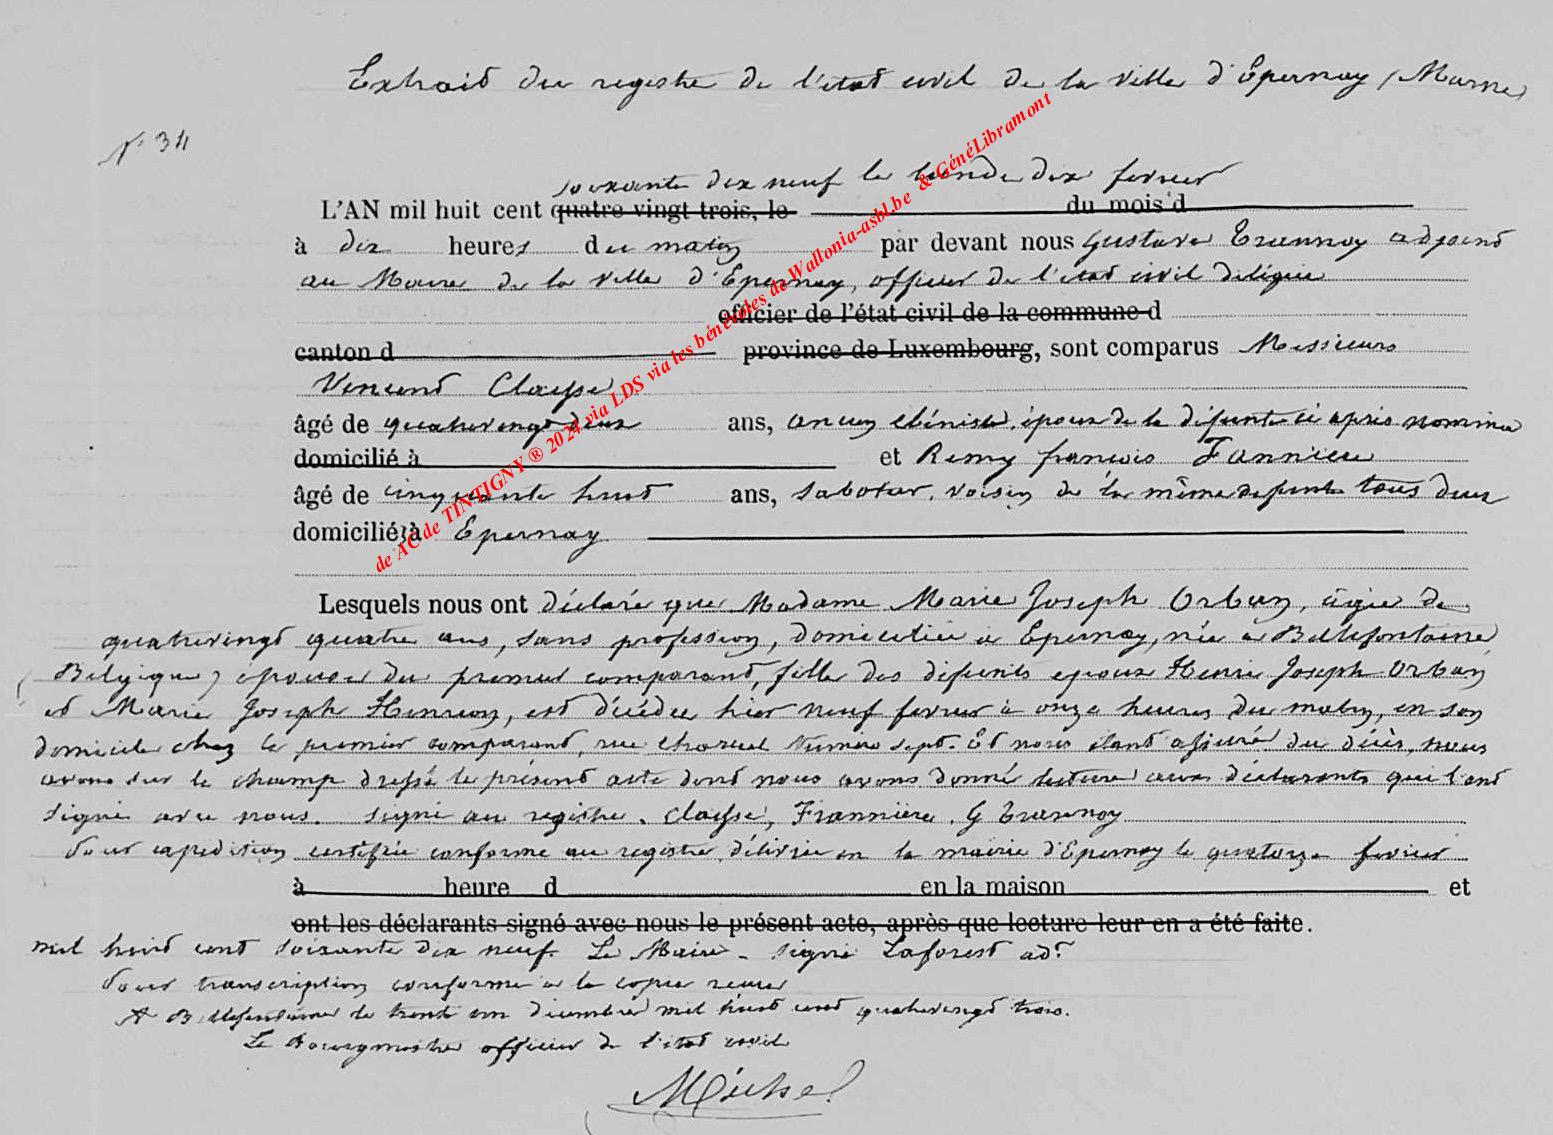 Extrait du registre de l'état civil de la ville d'Epernay (Marne)
N° 34
soixante dix neuf le lundi dix fevrier
L'AN mil huit cent quatre vingt trois, le du mois d
à dix heures du matin par devant nous Gustave Trannoy adjoint
au Maire de la ville d'Epernay, officier de l'état civil délégué
officier de l'état civil de la commune d
canton d province de Luxembourg, sont comparus Messieurs
Vincent Clausse
âgé de quatrevingt deux ans, ancien ébéniste, époux de la défunte ci après nommée
domicilié à et Remy françois Fannière
âgé de cinquante huit ans, sabotier, voisin de la même defunte tous deux
domiciliés à Epernay
Lesquels nous ont déclaré que Madame Marie Joseph Orban, âgée de
quatrevingt quatre ans, sans profession, domiciliée à Epernay, née à Bellefontaine
(Belgique) épouse du premier comparant, fille des défunts epoux Henri Joseph Orban
et Marie Joseph Henrion, est décédée hier neuf fevrier à onze heures du matin, en son
domicile chez le premier comparant, rue Numéro sept. Et nous étant assuré du décès, nous
avons sur le champ dressé le présent acte dont nous avons donné lecture aux déclarants qui l'ont
signé avec nous. signé au registre. Clausse, Frannière. G Trannoy
Pour expédition certifiée conforme au registre, délivrée en la mairie d'Epernay le quatorze fevrier
à heure d en la maison et
ont les déclarants signé avec nous le présent acte, après que lecture leur en a été faite.
mil huit cent soixante dix neuf. Le Maire - signé Laforest adt
Pour transcription conforme à la copie reçue
A Bellefontaine le trente un décembre mil huit cent quatrevingt trois.
Le Bourgmestre officier de l'état civil
Michel
de AC de TINTIGNY ® 2024 via LDS via les bénévoles de Wallonia-asbl.be & GénéLibramont